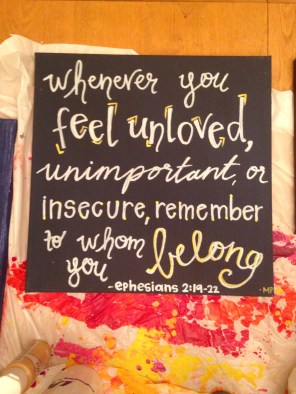 whenever you
feel unloved,
unimportant, or
insecure, remember
to whom
you belong
-ephesians 2:19-22
MP